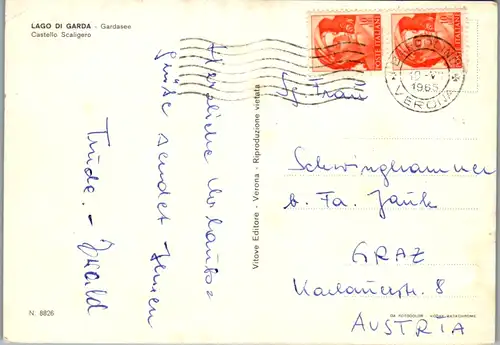 LAGO DI GARDA - Gardasee
Castello Scaligero
Herzliche Urlaubs=
Grüße sendet Ihnen
Trude. -
N. 8826
Vitove Editore - Verona - Riproduzione vietata
POSTE ITALIANE
POSTE ITALIANE
1965
VERONA
Sg. Frau
Schwinghammer
b. Fa. Jauk
GRAZ
Karlauerstr. 8
AUSTRIA